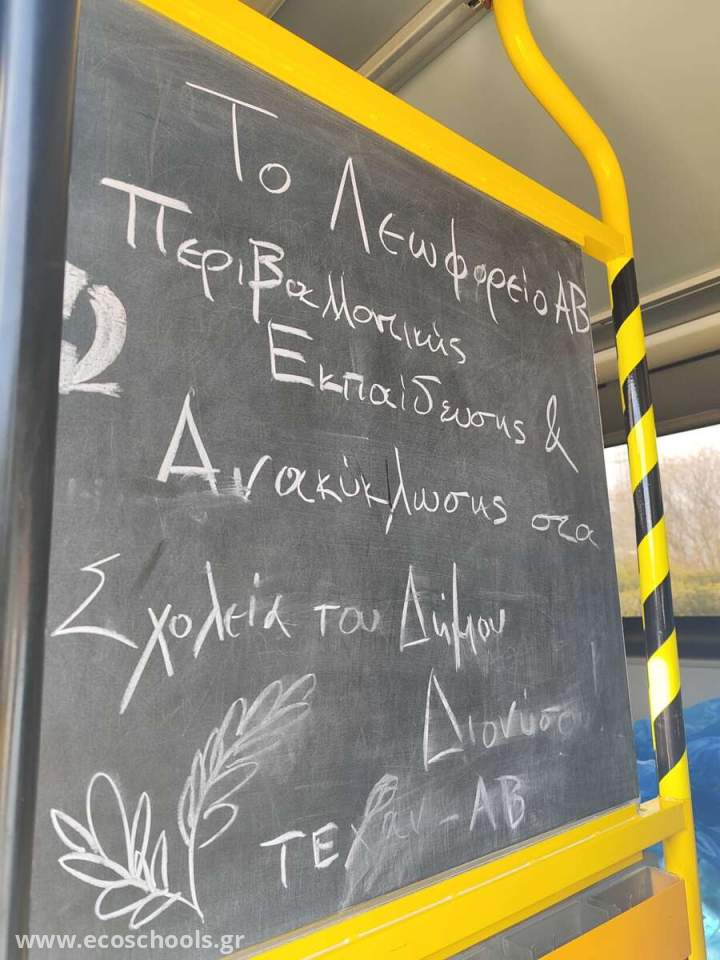 Το Λεωφορείο ΑΒ
Περιβαλλοντικής
Εκπαίδευσης &
Ανακύκλωσης στα
Σχολεία του Δήμου
Διονύσου!
ΤΕΧαν-ΑΒ
www.ecoschools.gr